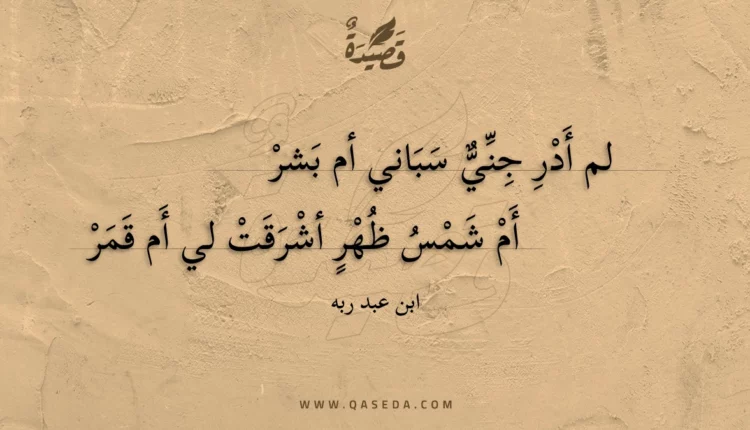 قَصِيدَةٌ
لم أَدْرِ جِنِّيٌّ سَبَاني أم بَشرْ
أَمْ شَمْسُ ظُهْرٍ أشْرَقَتْ لي أَم قَمَرْ
ابن عبد ربه
WWW.QASEDA.COM